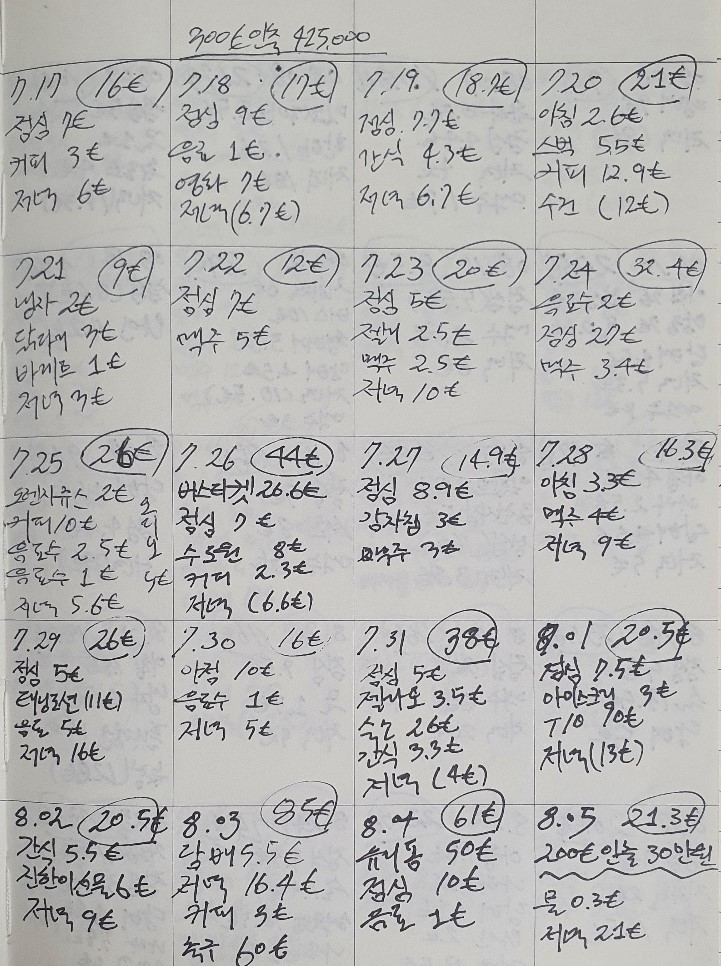 300€ 인출 425,000
7.17 16€
점심 7€
커피 3€
저녁 6€
7.18 17€
점심 9€
음료 1€
영화 7€
저녁(6.7€)
7.19 18.7€
점심 7.7€
간식 4.3€
저녁 6.7€
7.20 21€
아침 2.6€
스벅 5.5€
커피 12.9€
수건 (12€)
7.21 9€
낭자 2€
닭다리 3€
바게트 1€
저녁 3€
7.22 12€
점심 7€
맥주 5€
7.23 20€
점심 5€
젤리 2.5€
맥주 2.5€
저녁 10€
7.24 32.4€
음료수 2€
점심 27€
맥주 3.4€
7.25 26€
오렌지쥬스 2€
커피 10€
음료수 2.5€
음료수 1€
저녁 5.6€
5€
7.26 44€
버스티켓 26.6€
점심 7€
수도원 8€
커피 2.3€
저녁 (6.6€)
7.27 14.9€
점심 8.9€
감자칩 3€
맥주 3€
7.28 16.3€
아침 3.3€
맥주 4€
저녁 9€
7.29 26€
점심 5€
태닝로션 (11€)
음료 5€
저녁 16€
7.30 16€
아점 10€
음료수 1€
저녁 5€
7.31 38€
점심 5€
3.5€
숙소 26€
간식 3.3€
저녁 (4€)
8.01 20.5€
점심 7.5€
아이스크림 3€
T10 10€
저녁(13€)
8.02 20.5€
간식 5.5€
진한이선물 6€
저녁 9€
8.03 85€
담배 5.5€
저녁 16.4€
커피 3€
축구 60€
8.04 61€
유니폼 50€
점심 10€
음료 1€
8.05 21.3€
200€ 인출 30만원
물 0.3€
저녁 21€